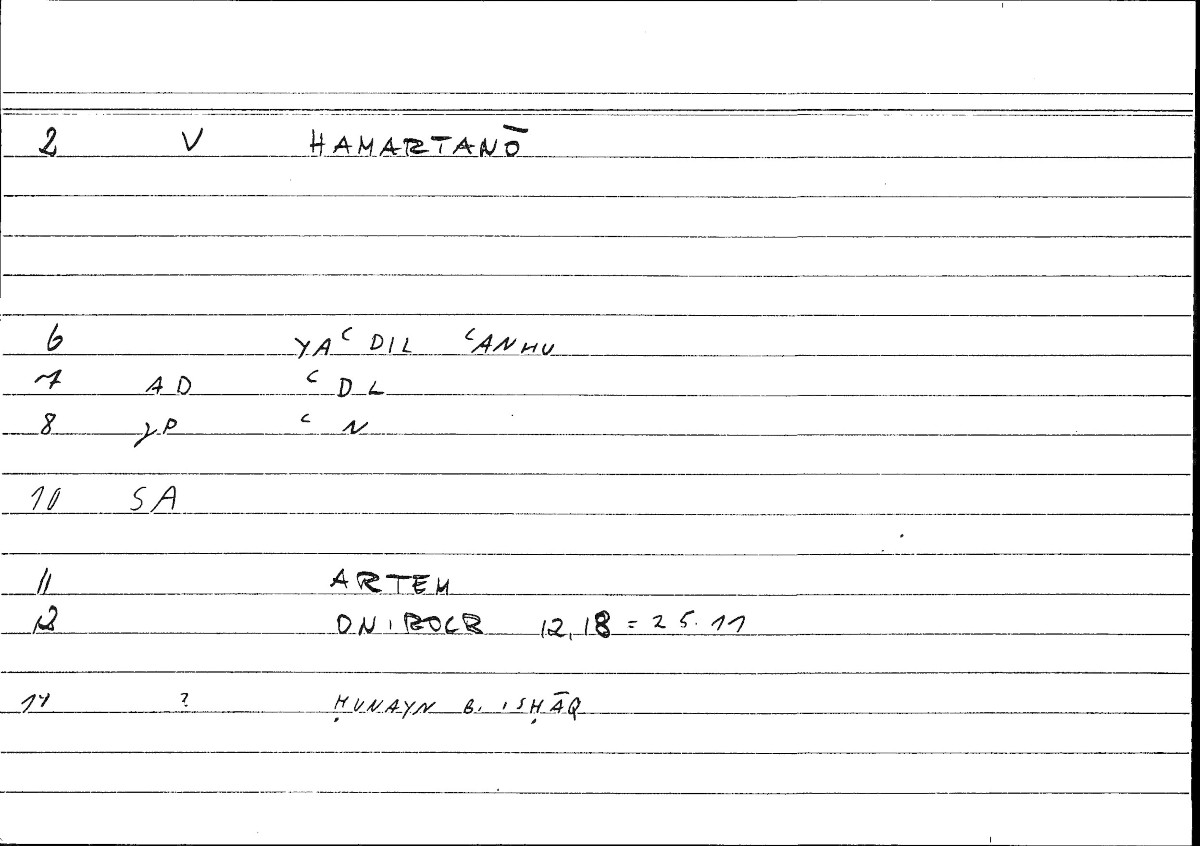 2 V HAMARTANŌ
6 YAʿDIL ʿANHU
7 AD ʿDL
8 γP ʿN
10 SA
11 ARTEM
12 ONIROCR 12,18 = 25.11
14 ? ḤUNAYN B. ISḤĀQ